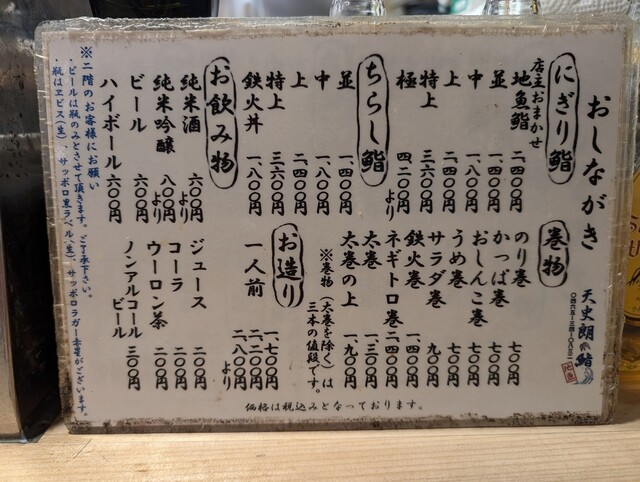 おしながき
にぎり鮨
店主おまかせ
地魚鮨 二、四〇〇円
並 一、四〇〇円
中 一、八〇〇円
上 二、四〇〇円
特上 三、六〇〇円
極 四、二〇〇円より
ちらし鮨
並 一、四〇〇円
中 一、八〇〇円
上 二、四〇〇円
特上 三、六〇〇円
鉄火丼 一、八〇〇円
お飲み物
純米酒 六〇〇円より
純米吟醸 八〇〇円より
ビール 六〇〇円
ハイボール 六〇〇円
巻物
のり巻 七〇〇円
かっぱ巻 七〇〇円
おしんこ巻 七〇〇円
うめ巻 七〇〇円
サラダ巻 九〇〇円
鉄火巻 二、一〇〇円
ネギトロ巻 二、四〇〇円
太巻 一、三〇〇円
太巻の上 一、九〇〇円
※巻物(太巻を除く)は
三本の値段です。
お造り
一人前 一、七〇〇円
二、二〇〇円
二、八〇〇円より
ジュース 二〇〇円
コーラ 二〇〇円
ウーロン茶 二〇〇円
ノンアルコール
ビール 三〇〇円
※二階のお客様にお願い
・ビールは瓶のみとさせて頂きます。ご了承下さい。
・瓶はヱビス(生)、サッポロ黒ラベル(生)、サッポロラガー赤星がございます。
天史朗鮨
価格は税込みとなっております。